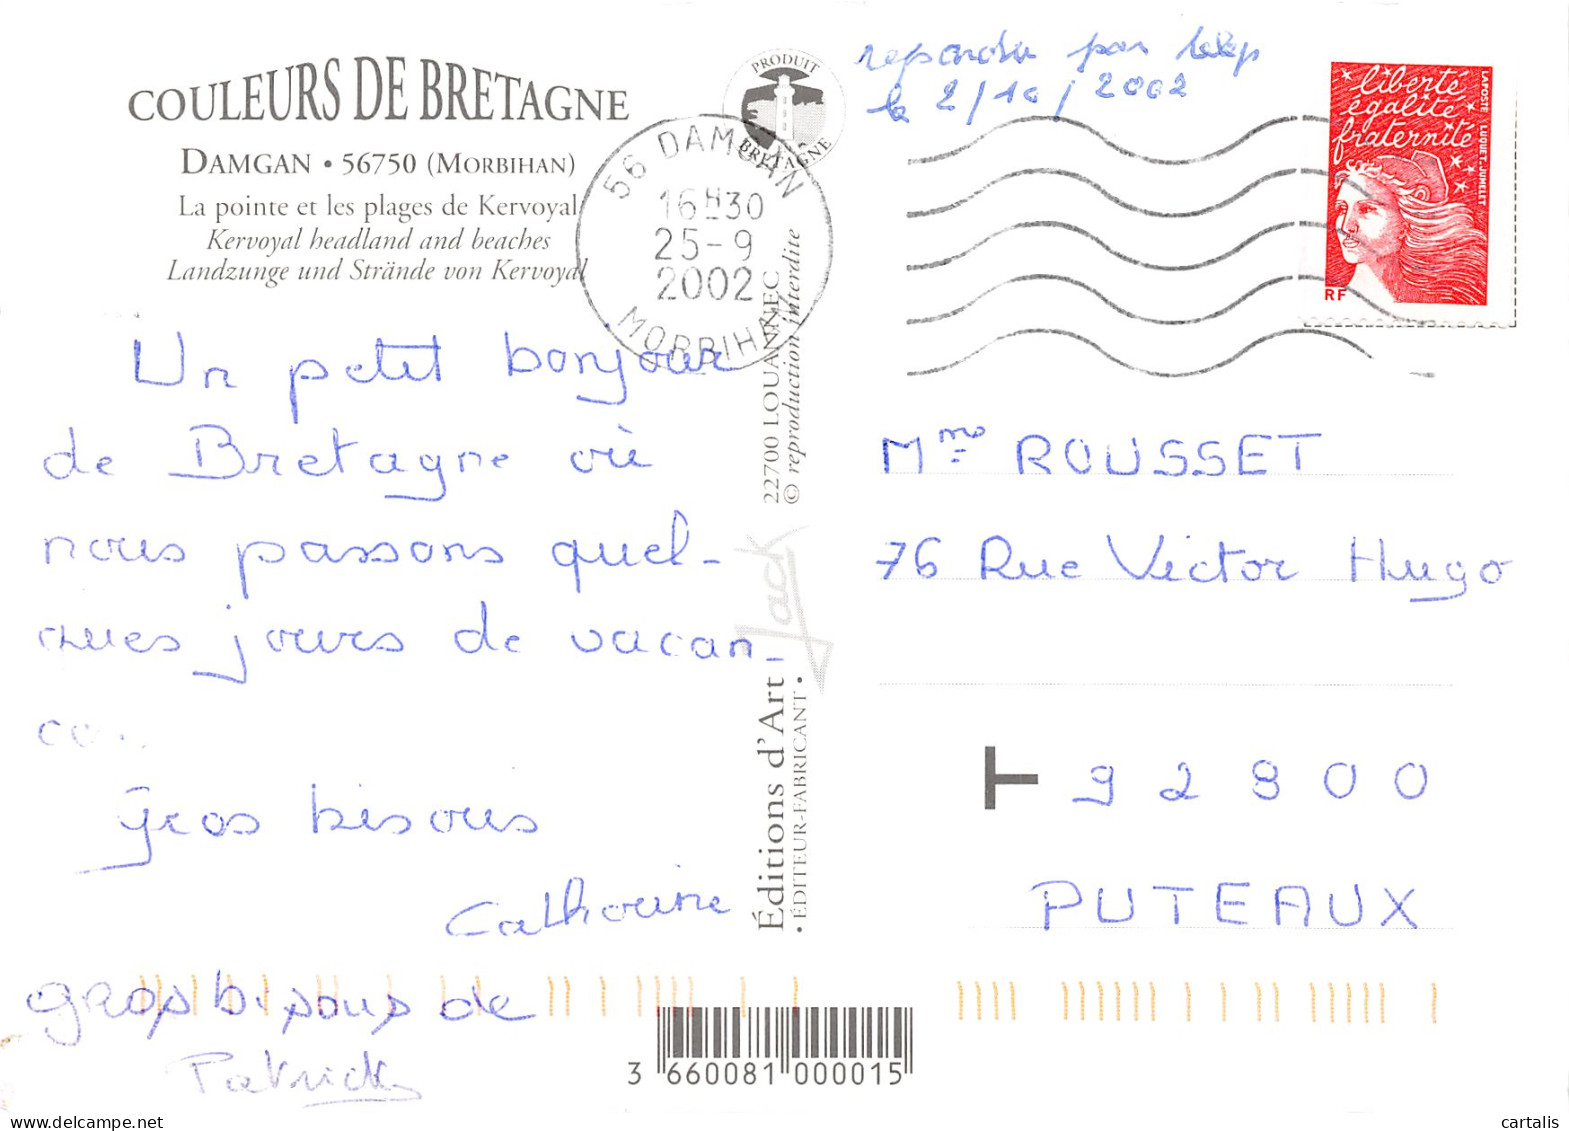 COULEURS DE BRETAGNE
DAMGAN • 56750 (MORBIHAN)
La pointe et les plages de Kervoyal
Kervoyal headland and beaches
Landzunge und Strände von Kervoyal
PRODUIT
BRETAGNE
56 DAMGAN
16H30
25-9
2002
MORBIHAN
repondu par telep
le 2/10/2002
liberté
égalité
fraternité
LA POSTE LUQUET-JUMELET
RF
Un petit bonjour
de Bretagne où
nous passons quel-
ques jours de vacan-
ces.
Gros bisous
Catherine
gros bisous de
Patrick
22700 LOUANNEC
© reproduction interdite
Jack
Éditions d'Art
• ÉDITEUR-FABRICANT •
Mme ROUSSET
76 Rue Victor Hugo
92800
PUTEAUX
3 660081 000015
cartalis.com